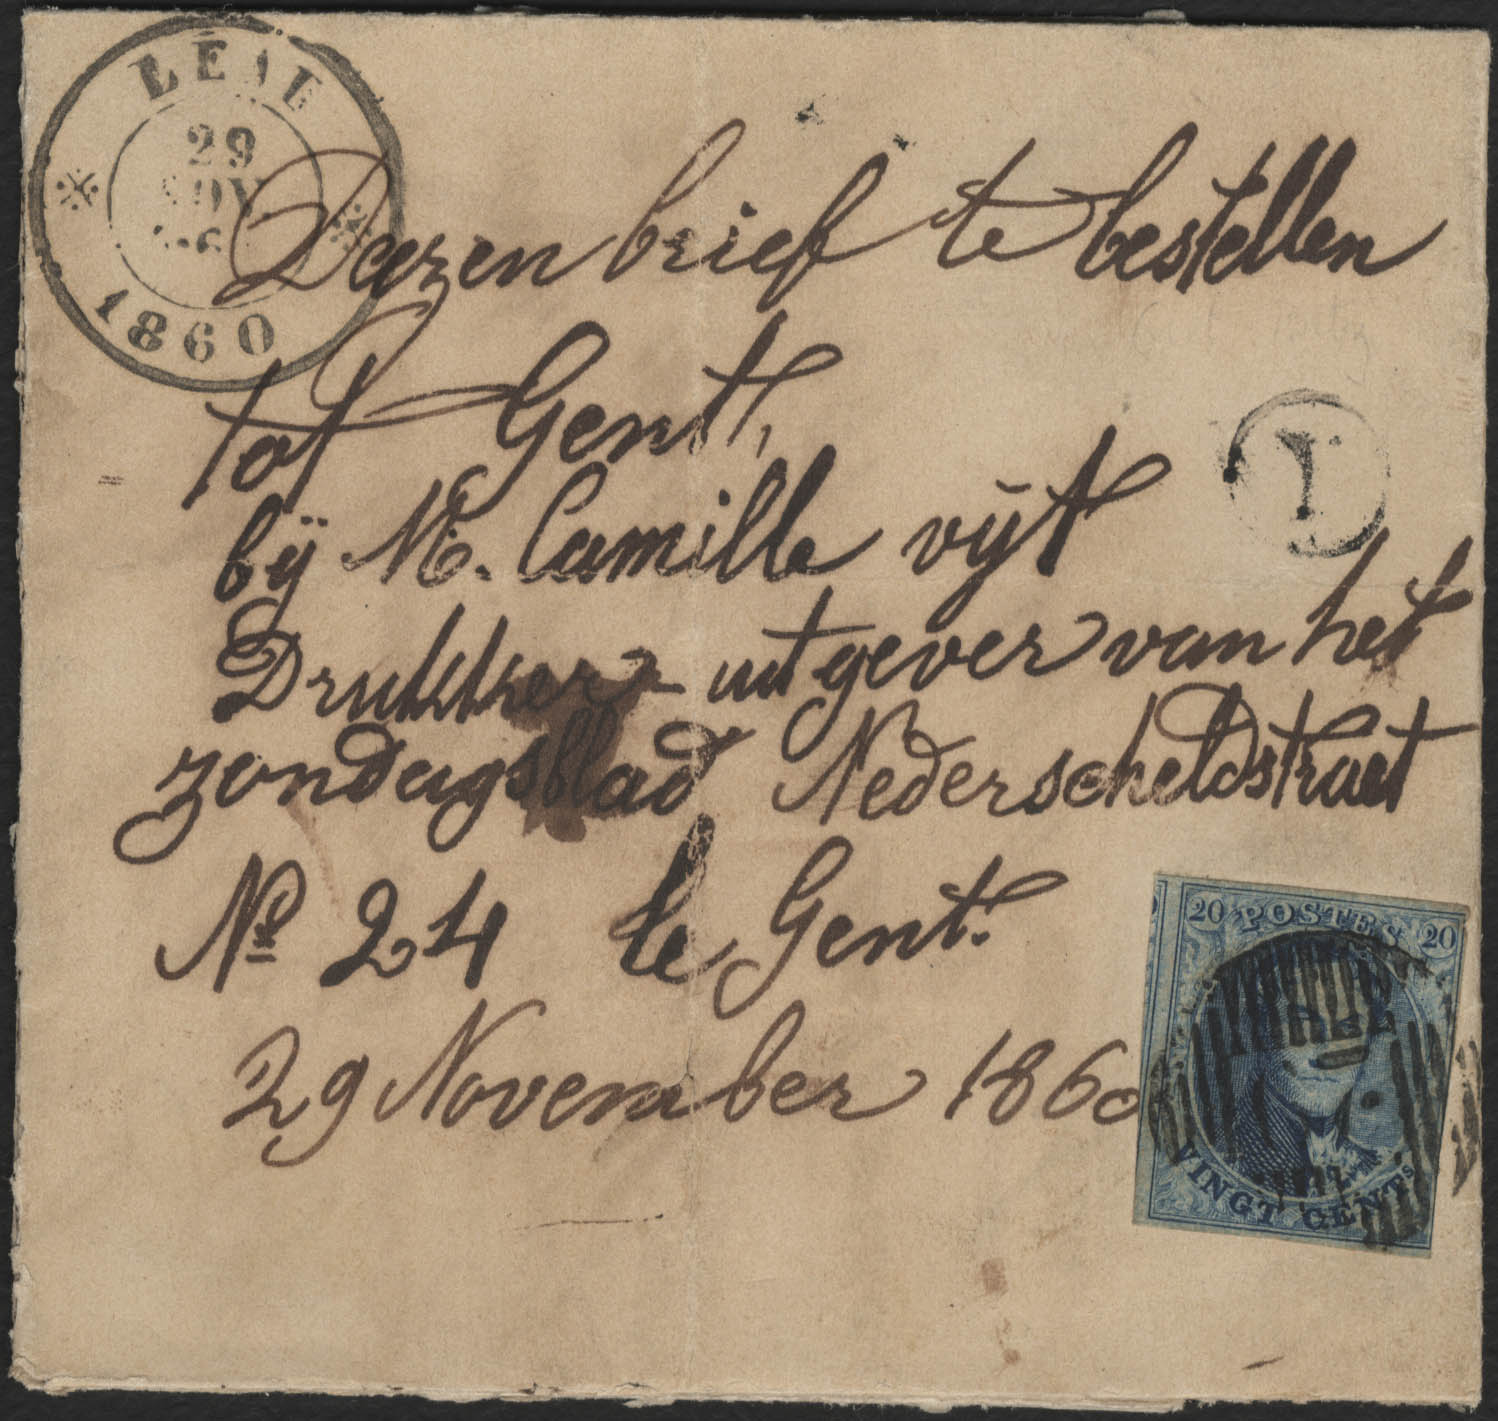 29
1860
Deezen brief te bestellen
tot Gent,
bij Mr. Camille vijt
Drukker - uitgever van het
zondagsblad Nederscheldstraet
No 24 te Gent.
29 November 1860
I
20 POSTES 20
VINGT CENTS